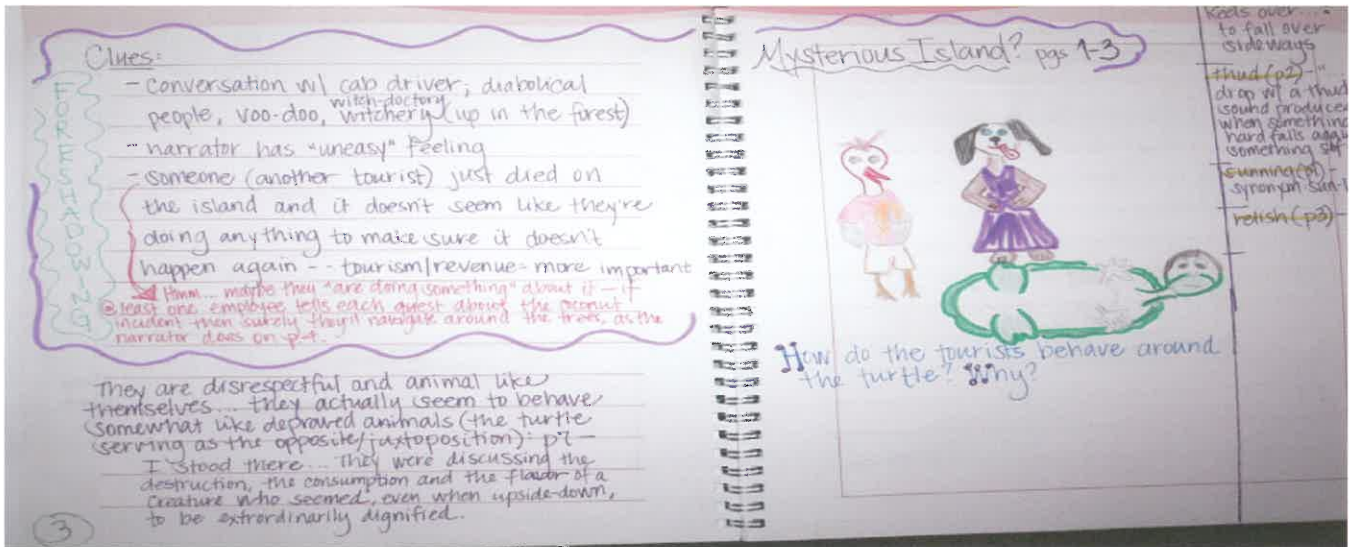 Clues:
FORESHADOWING
- conversation w/ cab driver; diabolical
people, voo-doo, witchery (up in the forest)
witch-doctory
- narrator has "uneasy" feeling
- someone (another tourist) just died on
the island and it doesn't seem like they're
doing anything to make sure it doesn't
happen again -- tourism/revenue = more important
Hmm... maybe they "are doing something" about it - if
@ least one employee tells each guest about the coconut
incident then surely they'll navigate around the trees, as the
narrator does on p.
They are disrespectful and animal like
themselves... they actually seem to behave
somewhat like depraved animals (the turtle
serving as the opposite/juxtoposition): p7 -
I stood there... They were discussing the
destruction, the consumption and the flavor of a
creature who seemed, even when upside-down,
to be extrordinarily dignified.
3
Mysterious Island? pgs 1-3
How do the tourists behave around
the turtle? Why?
Keels over....
to fall over
sideways
thud (p2) - "
drop w/ a thud
sound produce
when something
hard falls
something
sunning (p1) -
synonym sun-
relish (p3) -